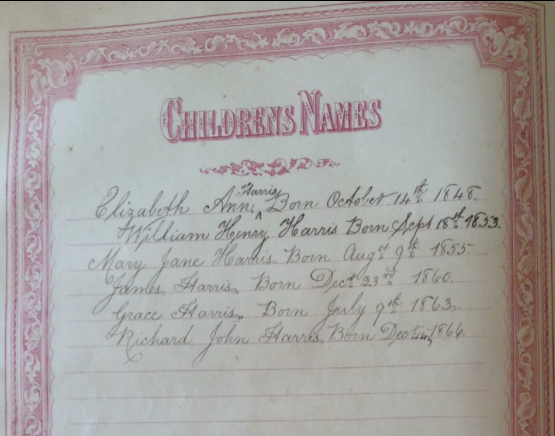 CHILDRENS NAMES
Elizabeth Ann Harris Born October 14th 1848.
William Henry Harris Born Sept 18th 1853.
Mary Jane Harris Born Augst 9th 1855.
James Harris, Born Dect 23rd 1860.
Grace Harris, Born July 9th 1863.
Richard John Harris, Born Dec 1866.